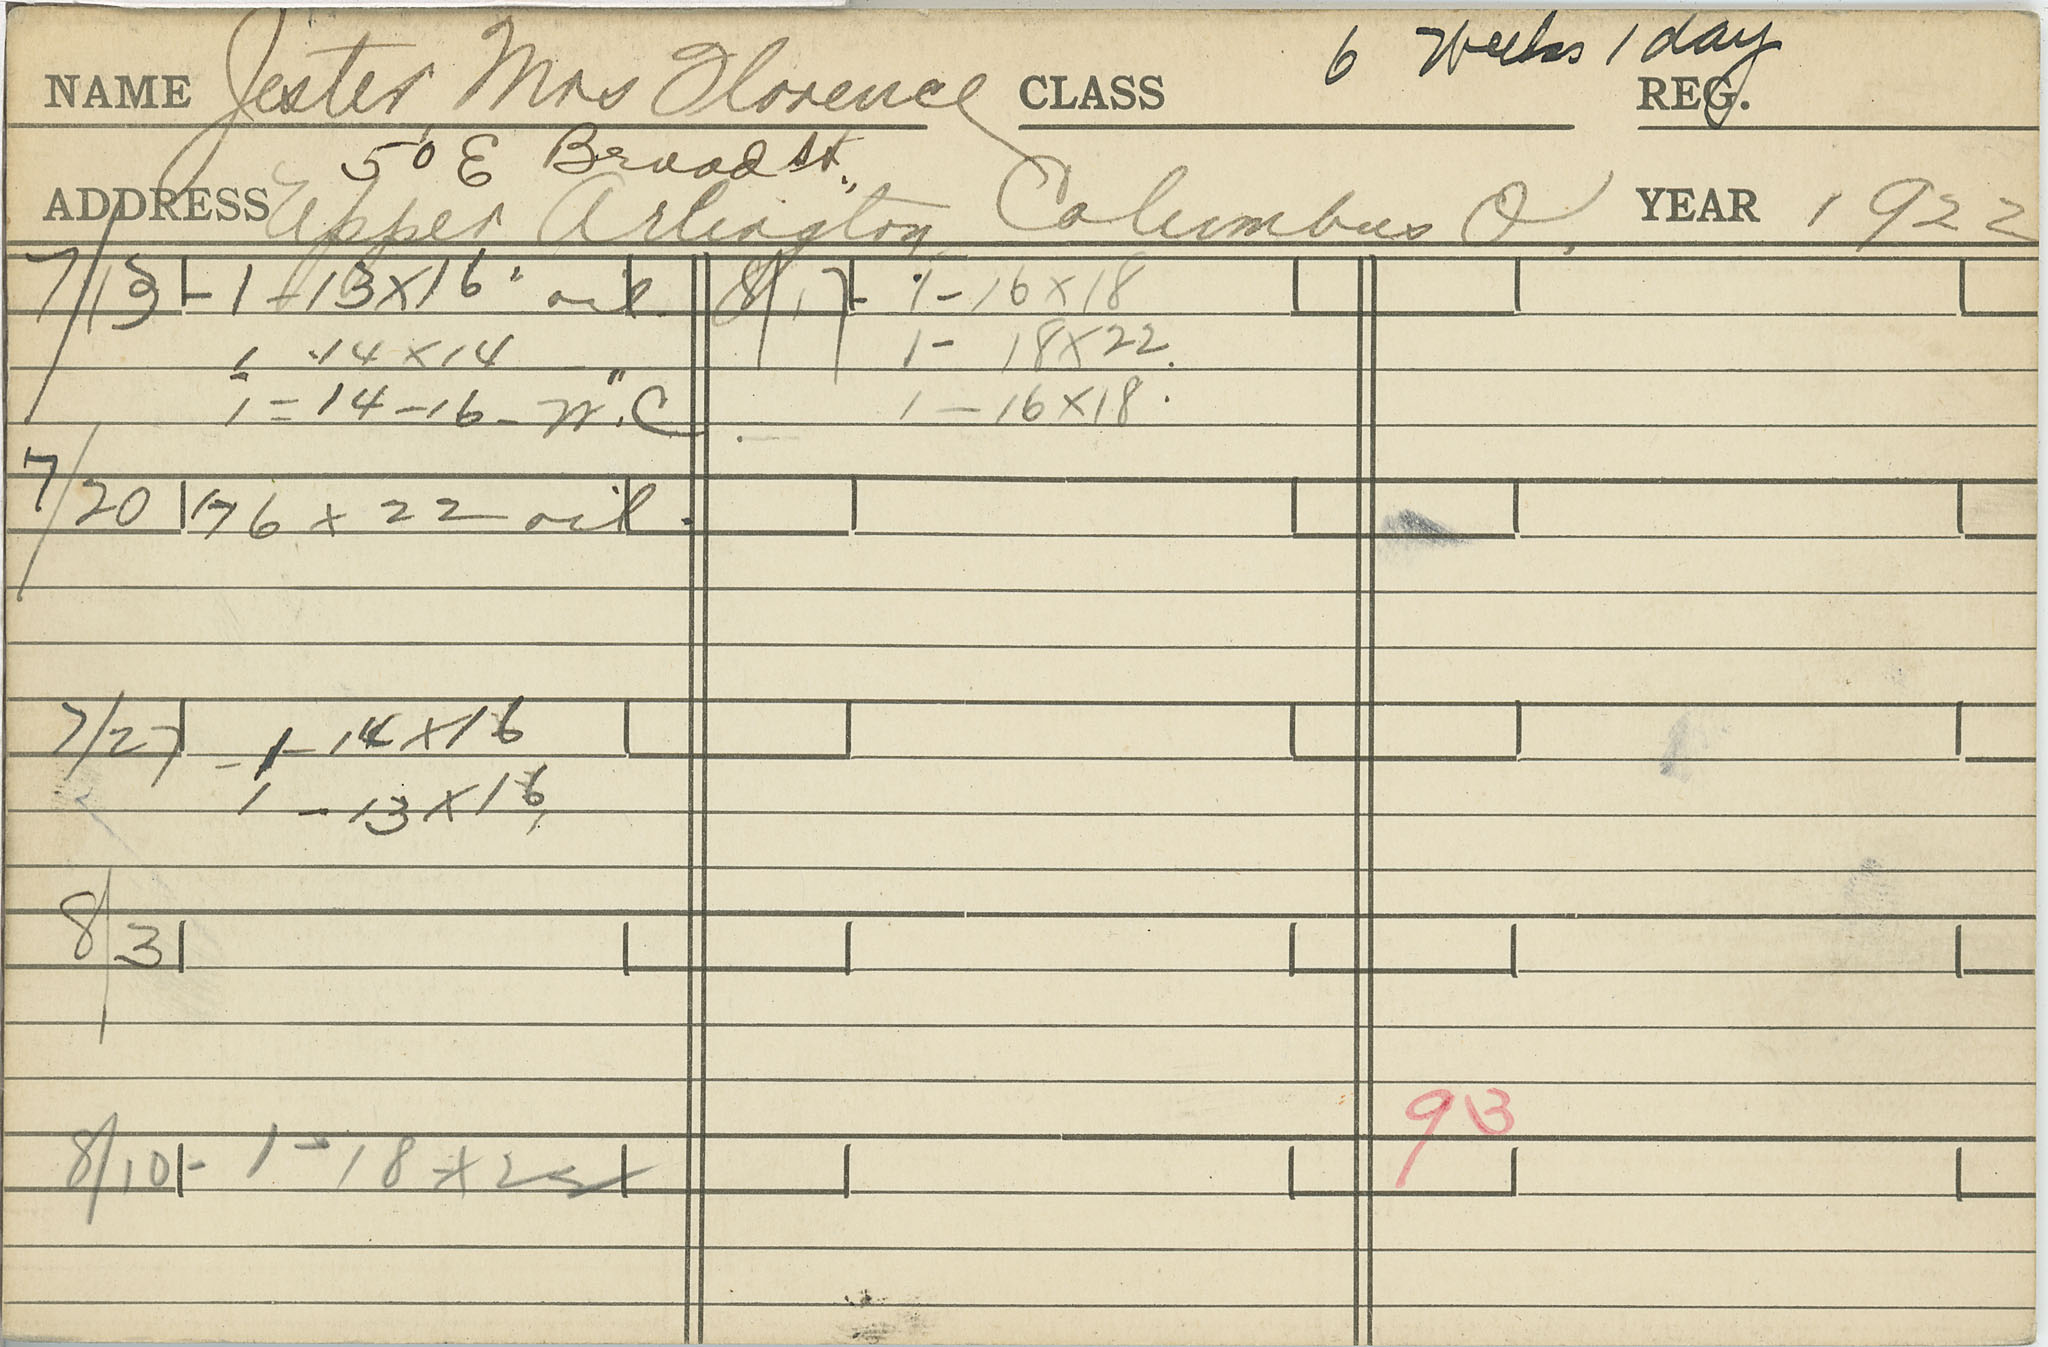 6 Weeks 1 day
NAME Jester, Mrs Florence CLASS REG.
50 E Broad St.,
ADDRESS Upper Arlington, Columbus O. YEAR 1922
7/13 - 1 - 13x16" oil 8/17 - 1 - 16x18
1 - 14x14 1 - 18x22.
1 = 14-16 - W.C 1 - 16x18.
7/20 x 22 oil.
7/27 - 1 - 14x16
1 - 13x16,
8/3
93
8/10 - 1 - 18x22